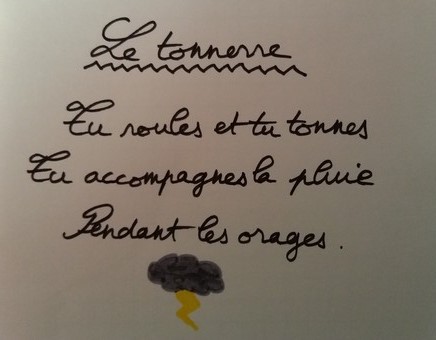 Le tonnerre
Tu roules et tu tonnes
Tu accompagnes la pluie
Pendant les orages.